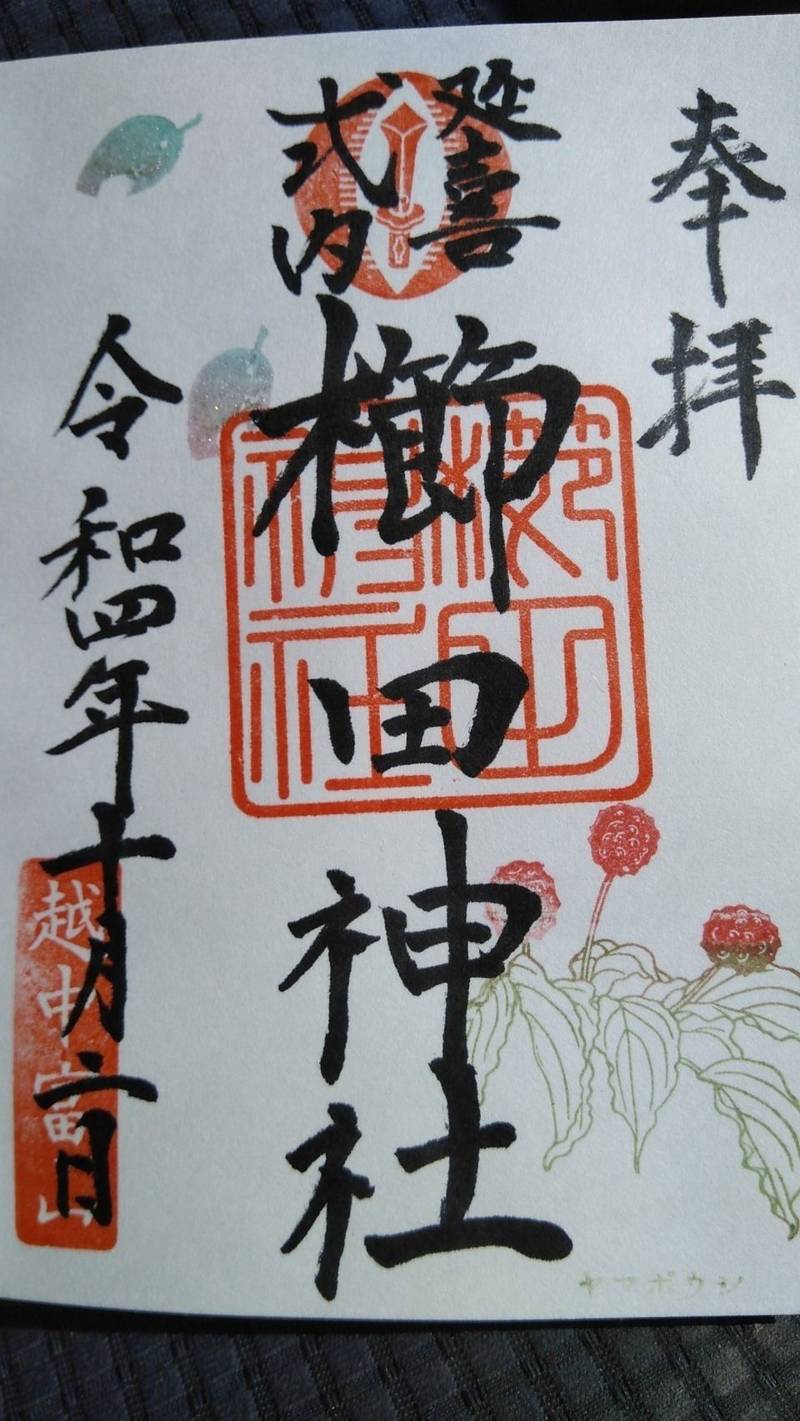 奉拝
延喜
式内
櫛田神社
櫛田
神社
令和四年十月二日
越中富山
ヤマボウシ